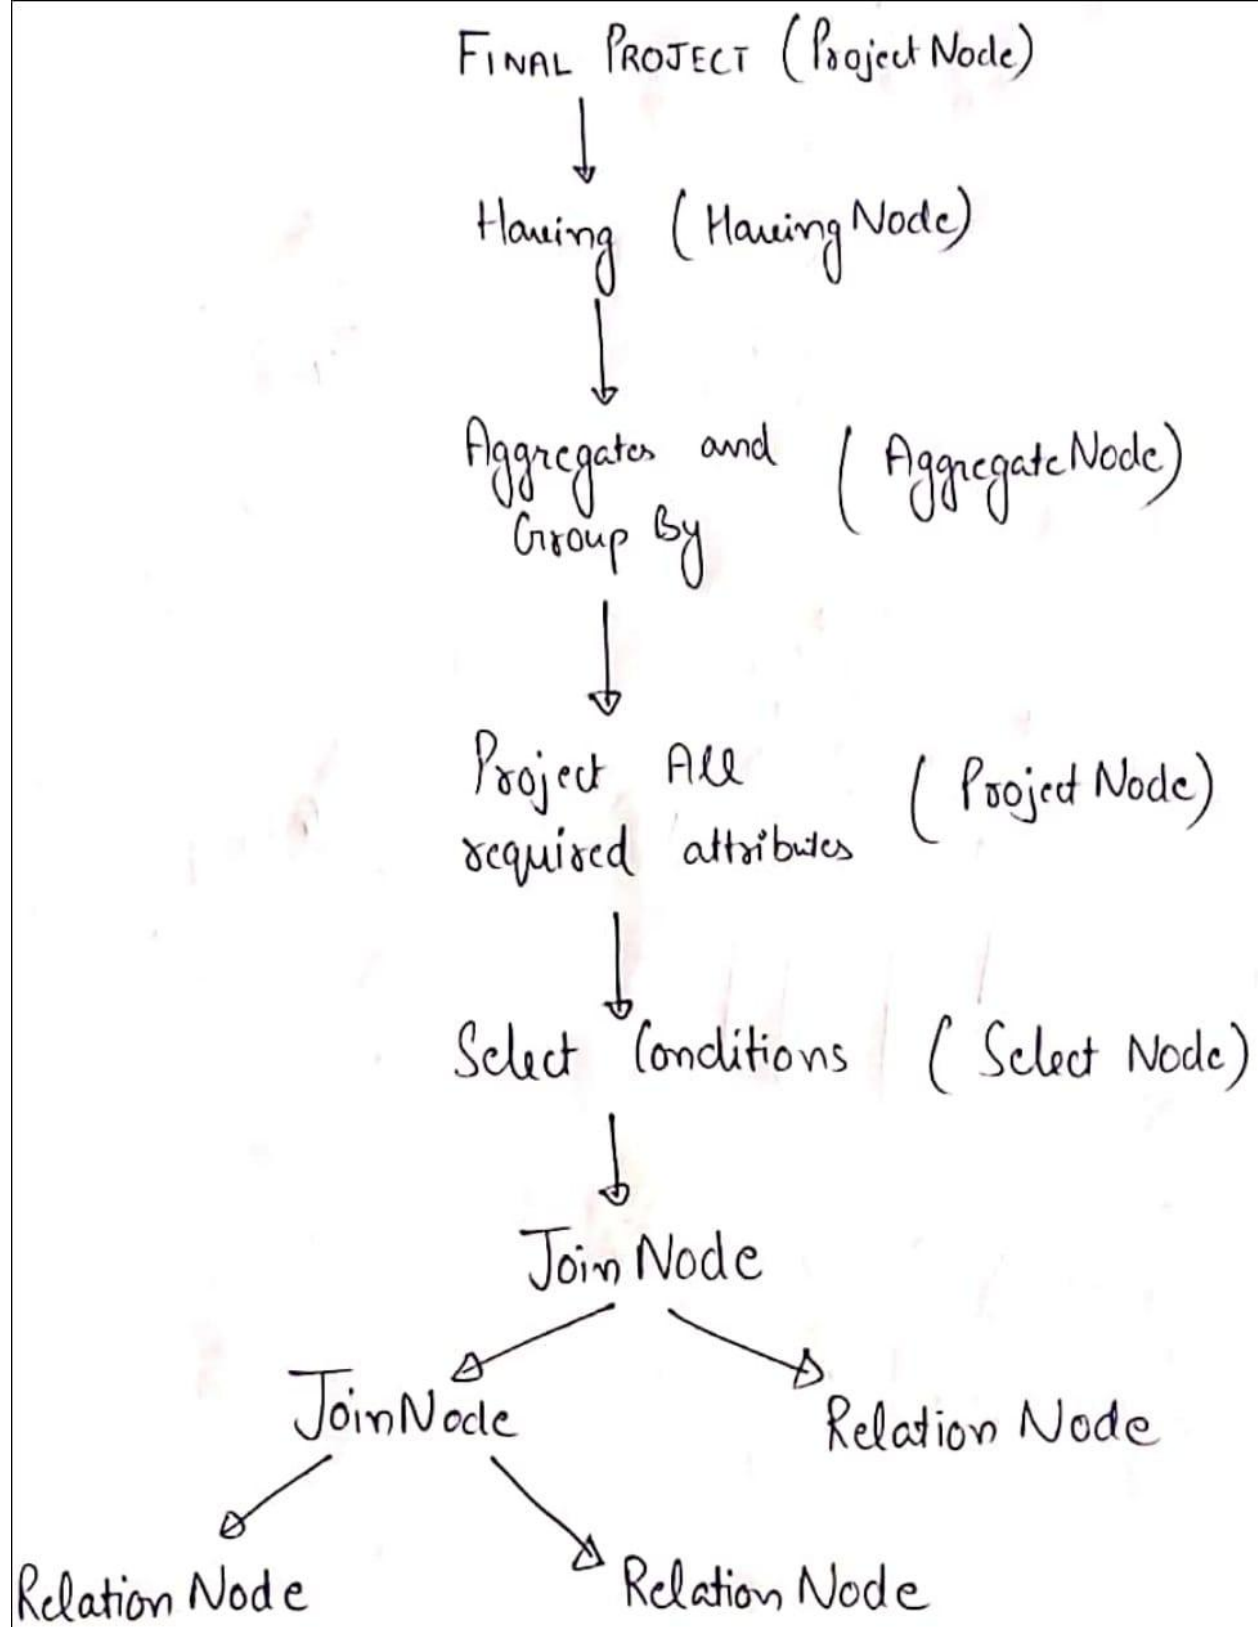 FINAL PROJECT (Project Node)
Having (Having Node)
Aggregates and (Aggregate Node)
Group By
Project All (Project Node)
required attributes
Select Conditions (Select Node)
Join Node
Join Node
Relation Node
Relation Node
Relation Node